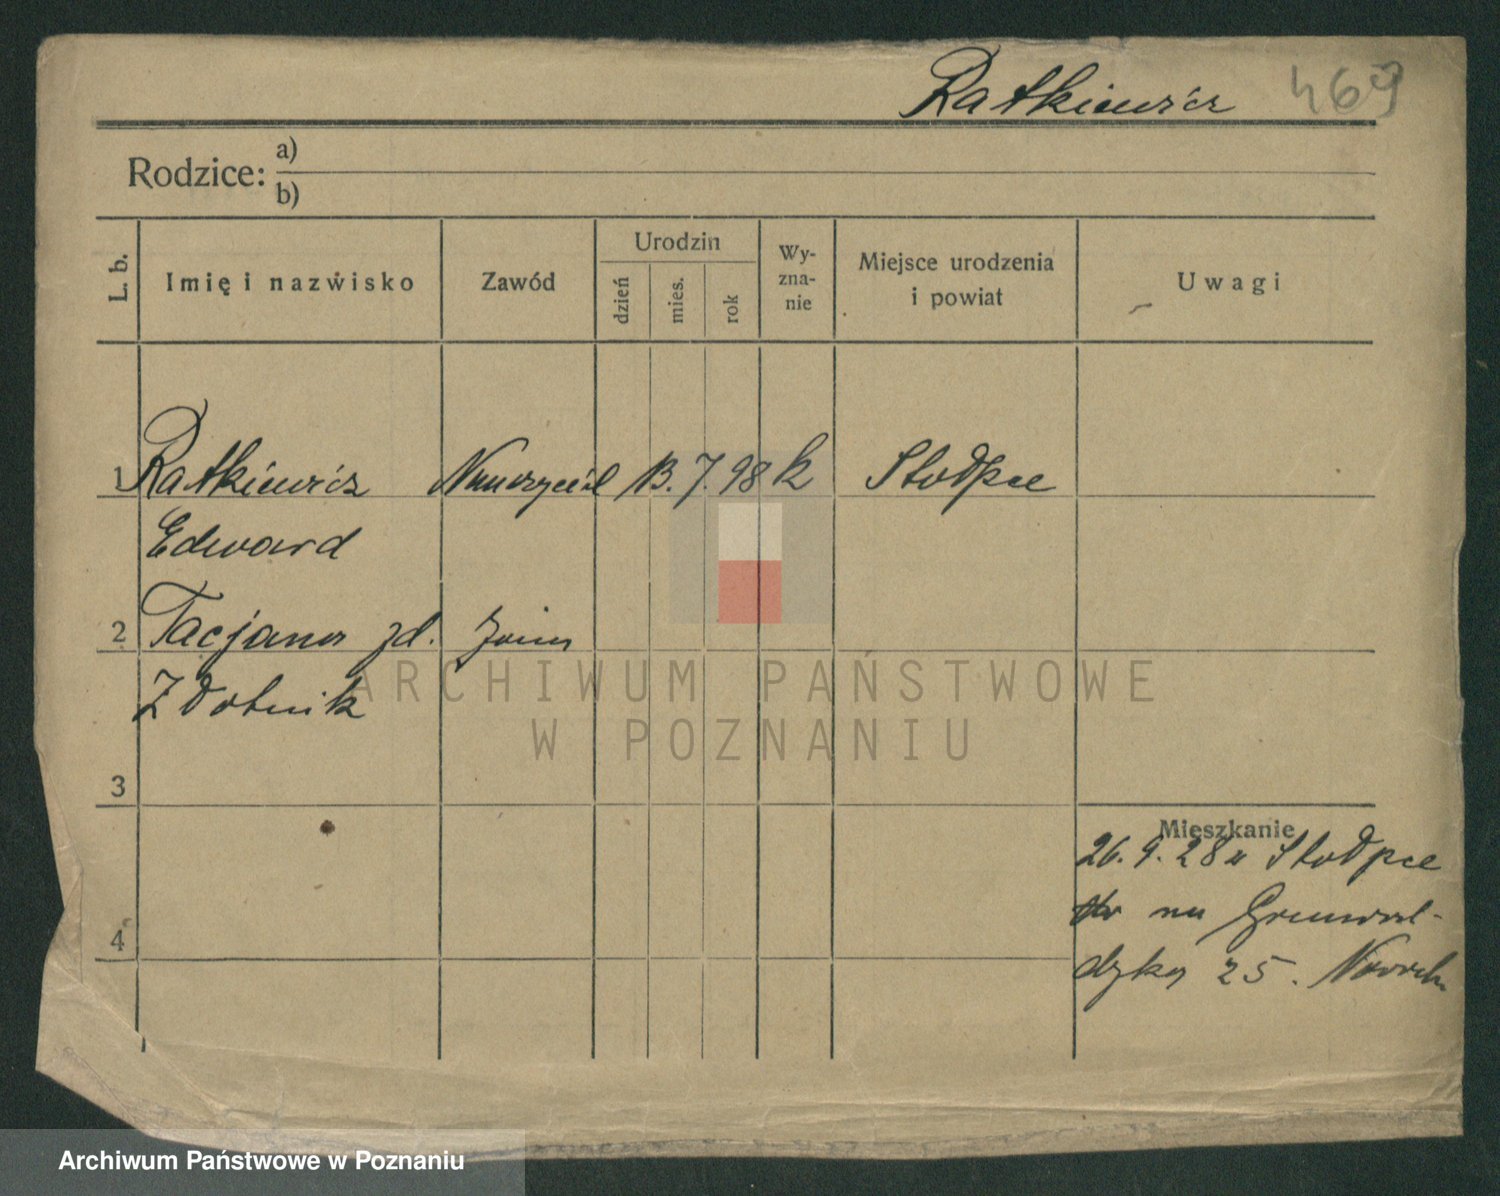 Ratkiewicz 469
Rodzice: a)
b)
L. b.
Imię i nazwisko
Zawód
Urodzin
dzień
mies.
rok
Wy-
zna-
nie
Miejsce urodzenia
i powiat
Uwagi
1 Ratkiewicz Nauczyciel 13. 7. 98 k Stołpce
Edward
2 Tacjana zd. żona
Zdotnik
3
4
Mieszkanie
26. 9. 28 z Stołpce
na Grunwal-
dzką 25.
ARCHIWUM PAŃSTWOWE
W POZNANIU
Archiwum Państwowe w Poznaniu